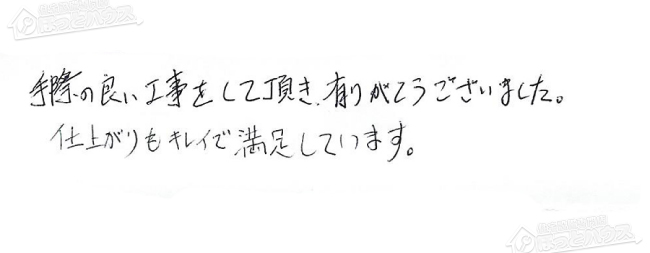 手際の良い工事をして頂き、有りがとうございました。
仕上がりもキレイで満足しています。